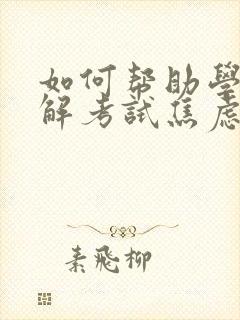 如何帮助學
解考試焦慮
素飛柳